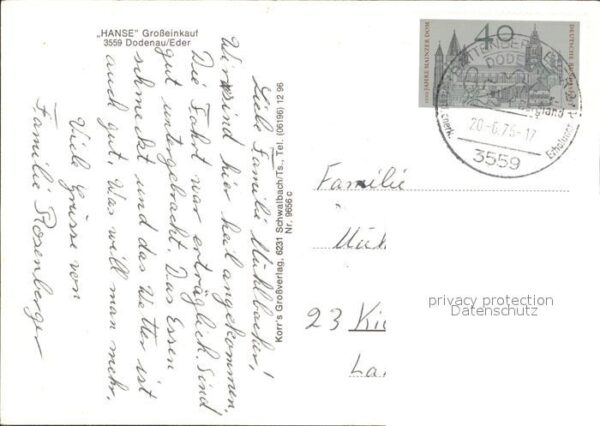 „HANSE" Großeinkauf
3559 Dodenau/Eder
Liebe Familie Mühlbacher!
Wir sind hier heil angekommen.
Die Fahrt war erträglich. Sind
gut untergebracht. Das Essen
schmeckt und das Wetter ist
auch gut. Was will man mehr.
Viele Grüsse von
Familie Rosenberger
Korr's Großverlag, 6231 Schwalbach/Ts., Tel. (06196) 12 96
Nr. 9656 c
40
1000 JAHRE MAINZER DOM
DEUTSCHE BUNDESPOST
BATTENBERG
DODENAU
20-6.76-17
3559
Familie
Mühl
23 Kie
La
privacy protection
Datenschutz